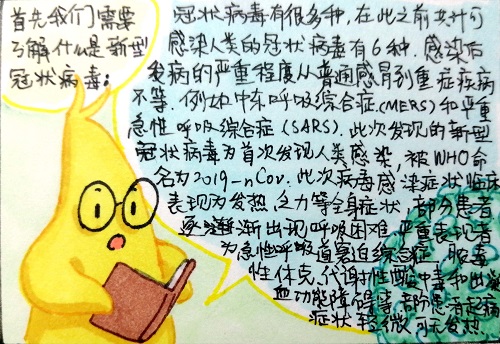 首先我们需要
了解什么是新型
冠状病毒：
冠状病毒有很多种，在此之前共计可
感染人类的冠状病毒有6种．感染后
发病的严重程度从普通感冒到重症疾病
不等．例如中东呼吸综合症(MERS)和严重
急性呼吸综合症(SARS)．此次发现的新型
冠状病毒为首次发现人类感染，被WHO命
名为2019-nCov．此次病毒感染症状临床
表现为发热、乏力等全身症状，部分患者
逐渐渐出现呼吸困难，严重表现者
为急性呼吸道窘迫综合征、脓毒
性休克、代谢性酸中毒和出凝
血功能障碍等，部份患者起病
症状轻微，可无发热．